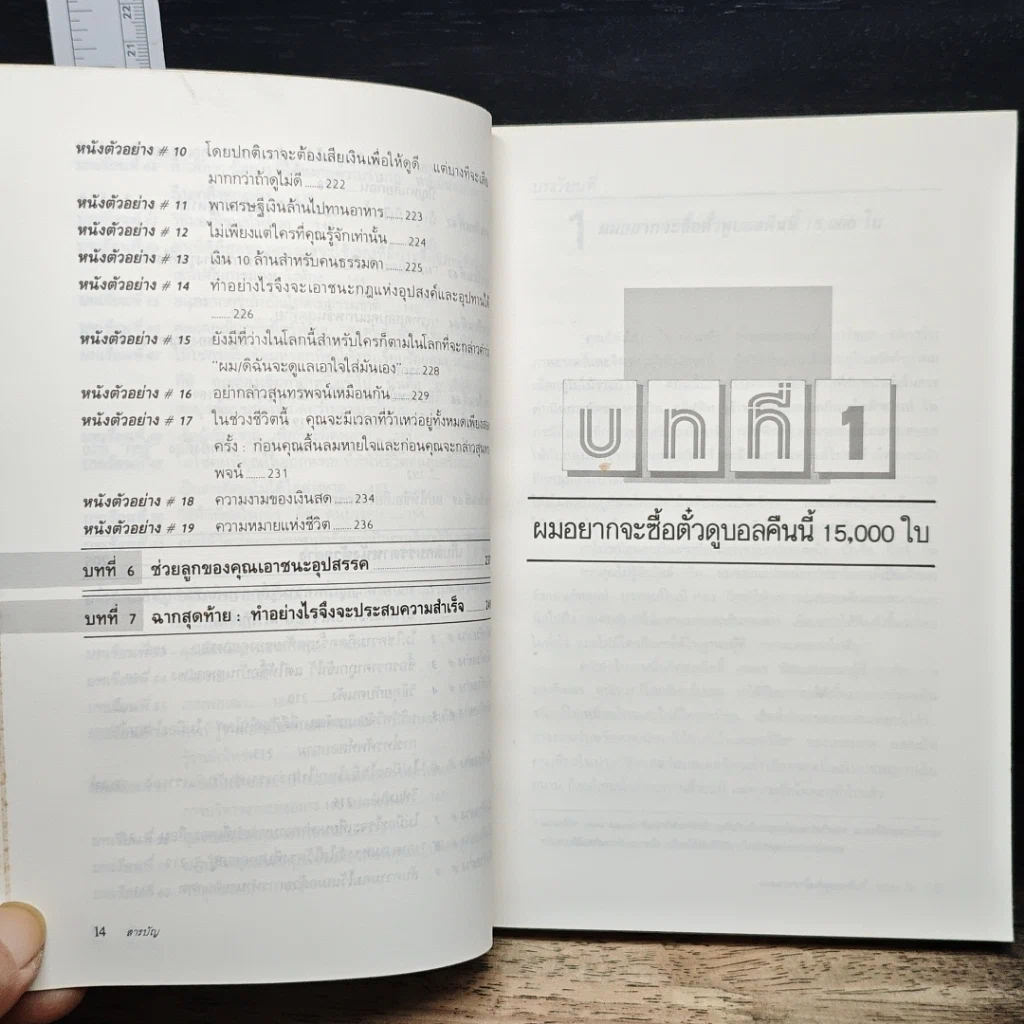 22
21
หนังตัวอย่าง # 10 โดยปกติเราจะต้องเสียเงินเพื่อให้ดูดี แต่บางทีจะเสีย
มากกว่าถ้าดูไม่ดี ........ 222
หนังตัวอย่าง # 11 พาเศรษฐีเงินล้านไปทานอาหาร ....... 223
หนังตัวอย่าง # 12 ไม่เพียงแต่ใครที่คุณรู้จักเท่านั้น ....... 224
หนังตัวอย่าง # 13 เงิน 10 ล้านสำหรับคนธรรมดา ....... 225
หนังตัวอย่าง # 14 ทำอย่างไรจึงจะเอาชนะกฎแห่งอุปสงค์และอุปทานได้
........ 226
หนังตัวอย่าง # 15 ยังมีที่ว่างในโลกนี้สำหรับใครก็ตามในโลกที่จะกล่าวคำว่า
"ผม/ดิฉันจะดูแลเอาใจใส่มันเอง" ....... 228
หนังตัวอย่าง # 16 อย่ากล่าวสุนทรพจน์เหมือนกัน ....... 229
หนังตัวอย่าง # 17 ในช่วงชีวิตนี้ คุณจะมีเวลาที่ว้าเหว่อยู่ทั้งหมดเพียงสอง
ครั้ง : ก่อนคุณสิ้นลมหายใจและก่อนคุณจะกล่าวสุนทร
พจน์ ........ 231
หนังตัวอย่าง # 18 ความงามของเงินสด ....... 234
หนังตัวอย่าง # 19 ความหมายแห่งชีวิต ....... 236
บทที่ 6 ช่วยลูกของคุณเอาชนะอุปสรรค
บทที่ 7 ฉากสุดท้าย : ทำอย่างไรจึงจะประสบความสำเร็จ
14 สารบัญ
บทที่ 1
ผมอยากจะซื้อตั๋วดูบอลคืนนี้ 15,000 ใบ